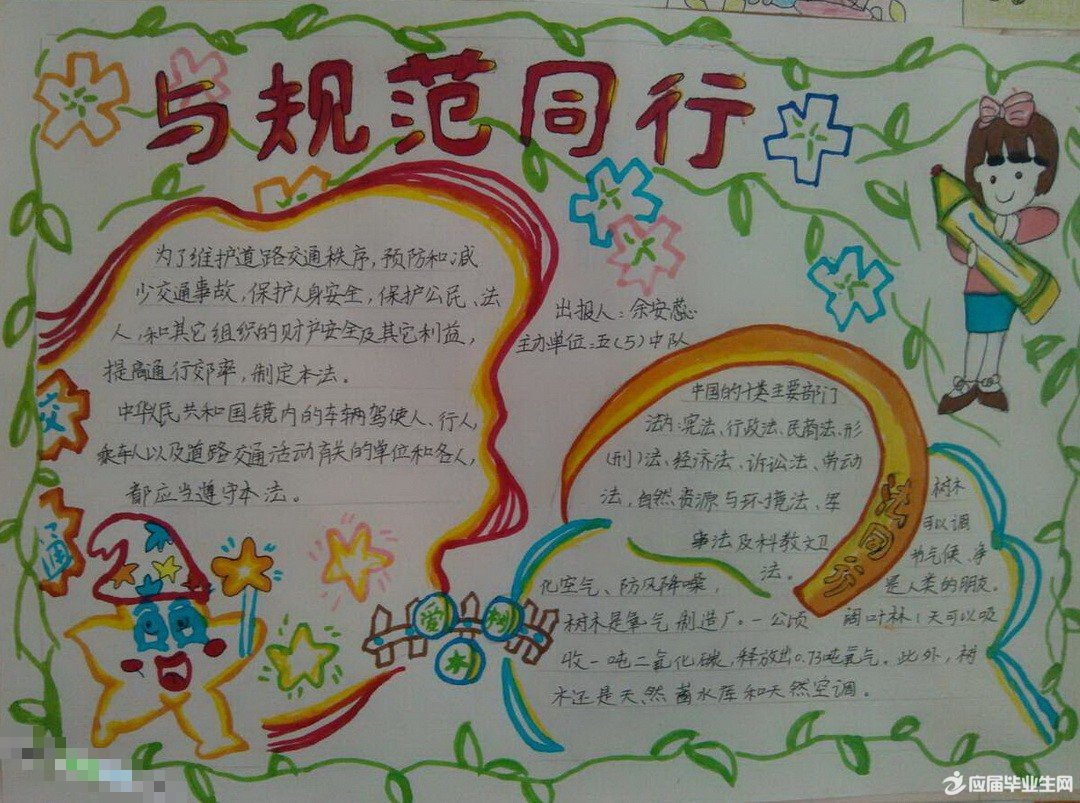 与规范同行
为了维护道路交通秩序,预防和减
少交通事故,保护人身安全,保护公民、法
人,和其它组织的财产安全及其它利益,
提高通行效率,制定本法。
中华人民共和国镜内的车辆驾使人、行人,
乘车人以及道路交通活动有关的单位和各人,
都应当遵守本法。
交
通
出报人:余安蕊
主办单位:五(5)中队
中国的十类主要部门
法为:宪法、行政法、民商法、形
(刑)法、经济法、诉讼法、劳动
法,自然资源与环境法、军
事法及科教文卫
法。
法同行
爱
树
木
树木
可以调
节气候、净
化空气、防风降噪,
是人类的朋友。
树木是氧气制造厂。一公顷
阔叶林1天可以吸
收一吨二氧化碳,释放出0.73吨氧气。此外,树
木还是天然蓄水库和天然空调。
应届毕业生网